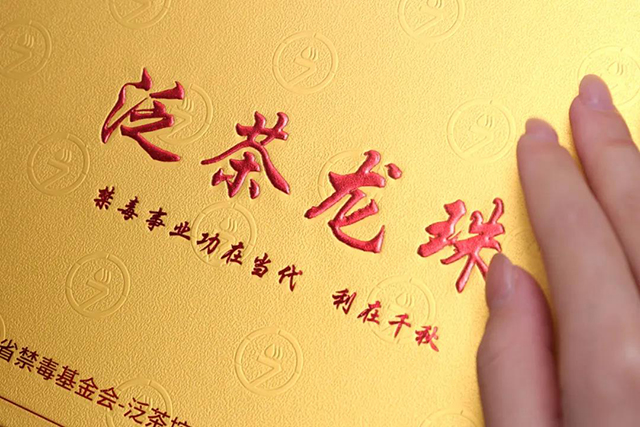 泛茶龙珠
禁毒事业功在当代 利在千秋
省禁毒基金会-泛茶